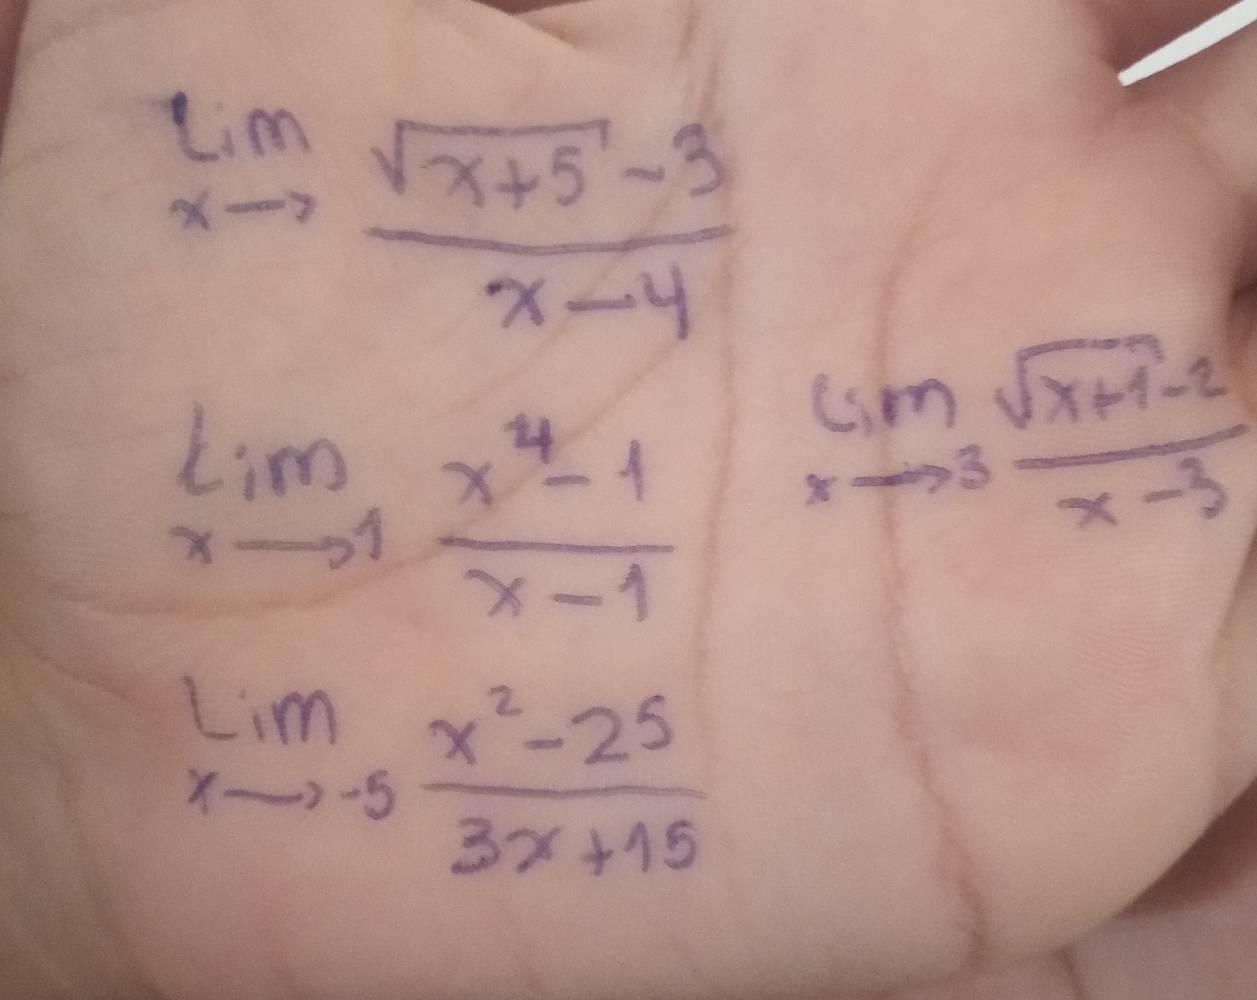 Lim x→ (√(x+5) - 3)/(x-4)
Lim x→1 (x⁴-1)/(x-1)
Lim x→-5 (x²-25)/(3x+15)
Lim x→3 (√(x+1)-2)/(x-3)